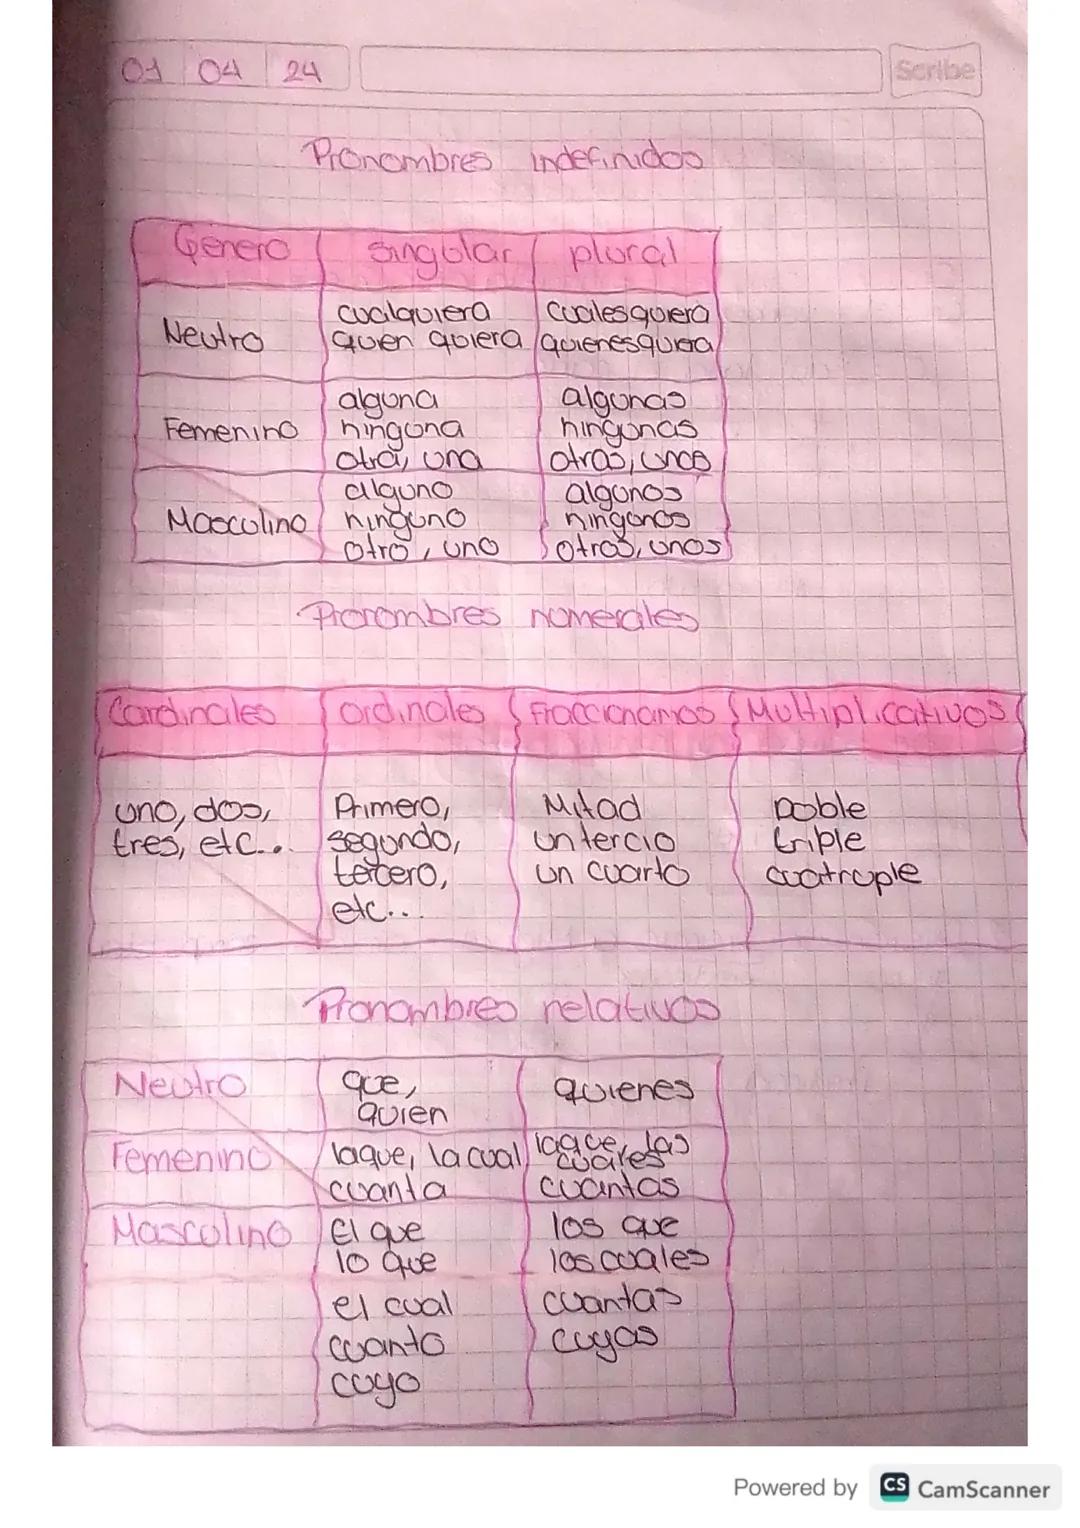 01 04 24
Scribe
Pronombres indefinidos
Género singular plural
Neutro
cualquiera cualesquiera
quen quiera quienesquiera
Femenino
alguna algunas
ninguna ningunas
otra, una otras, unas
Masculino
alguno algunos
ninguno ningunos
otro, uno otros, unos
Pronombres numerales
Cardinales ordinales Fraccionarios Multiplicativos
uno, dos, Primero, Mitad Doble
tres, etc... segundo, un tercio triple
tercero, un cuarto cuatruple
etc...
Pronombres relativos
Neutro que, quienes
quien
Femenino laque, la cual laque, las
cuales
cuanta cuantas
Masculino El que los que
lo que los cuales
el cual cuantas
cuanto cuyos
cuyo
Powered by CS CamScanner